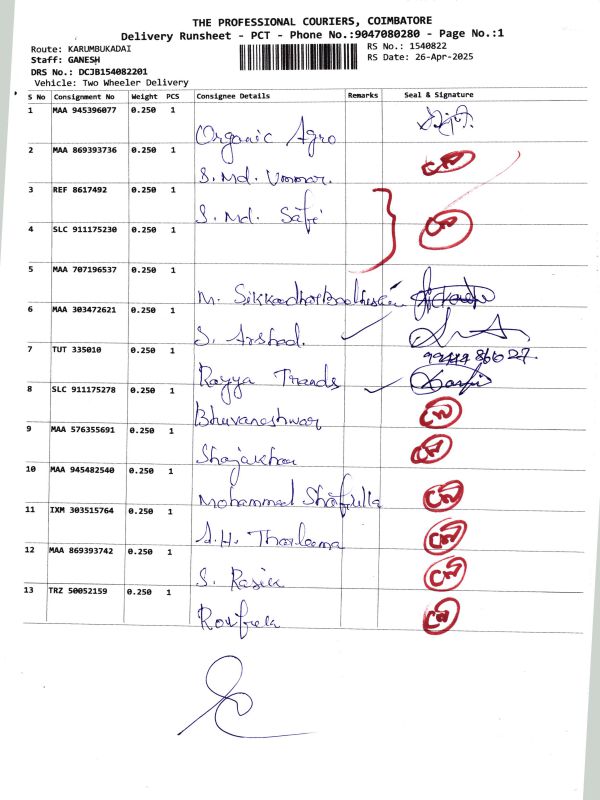 THE PROFESSIONAL COURIERS, COIMBATORE
Delivery Runsheet - PCT - Phone No.:9047080280 - Page No.:1
Route: KARUMBUKADAI RS No.: 1540822
Staff: GANESH RS Date: 26-Apr-2025
DRS No.: DCJB154082201
Vehicle: Two Wheeler Delivery
S No Consignment No Weight PCS Consignee Details Remarks Seal & Signature
1 MAA 945396077 0.250 1
Organic Agro
2 MAA 869393736 0.250 1
S. Md. Ummar.
3 REF 8617492 0.250 1
S. Md. Safi
4 SLC 911175230 0.250 1
5 MAA 707196537 0.250 1
M.
6 MAA 303472621 0.250 1
S. Arshad.
7 TUT 335010 0.250 1
Rayya Trands
8 SLC 911175278 0.250 1
Bhuvaneshwar
9 MAA 576355691 0.250 1
Shajakhan
10 MAA 945482540 0.250 1
Mohammad
11 IXM 303515764 0.250 1
A.H.
12 MAA 869393742 0.250 1
S. Rasik
13 TRZ 50052159 0.250 1